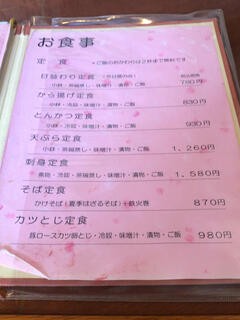 お食事
定食 ・ご飯のおかわりは2杯まで無料です
日替わり定食 税込価格
小鉢・茶碗蒸し・味噌汁・漬物・ご飯 780円
から揚げ定食
小鉢・冷奴・味噌汁・漬物・ご飯 830円
とんかつ定食
小鉢・冷奴・味噌汁・漬物・ご飯 930円
天ぷら定食
小鉢・茶碗蒸し・味噌汁・漬物・ご飯 1,260円
刺身定食
煮物・冷奴・茶碗蒸し・味噌汁・漬物・ご飯 1,580円
そば定食
かけそば(夏季はざるそば)+鉄火巻 870円
カツとじ定食
豚ロースカツ卵とじ・冷奴・味噌汁・漬物・ご飯 980円